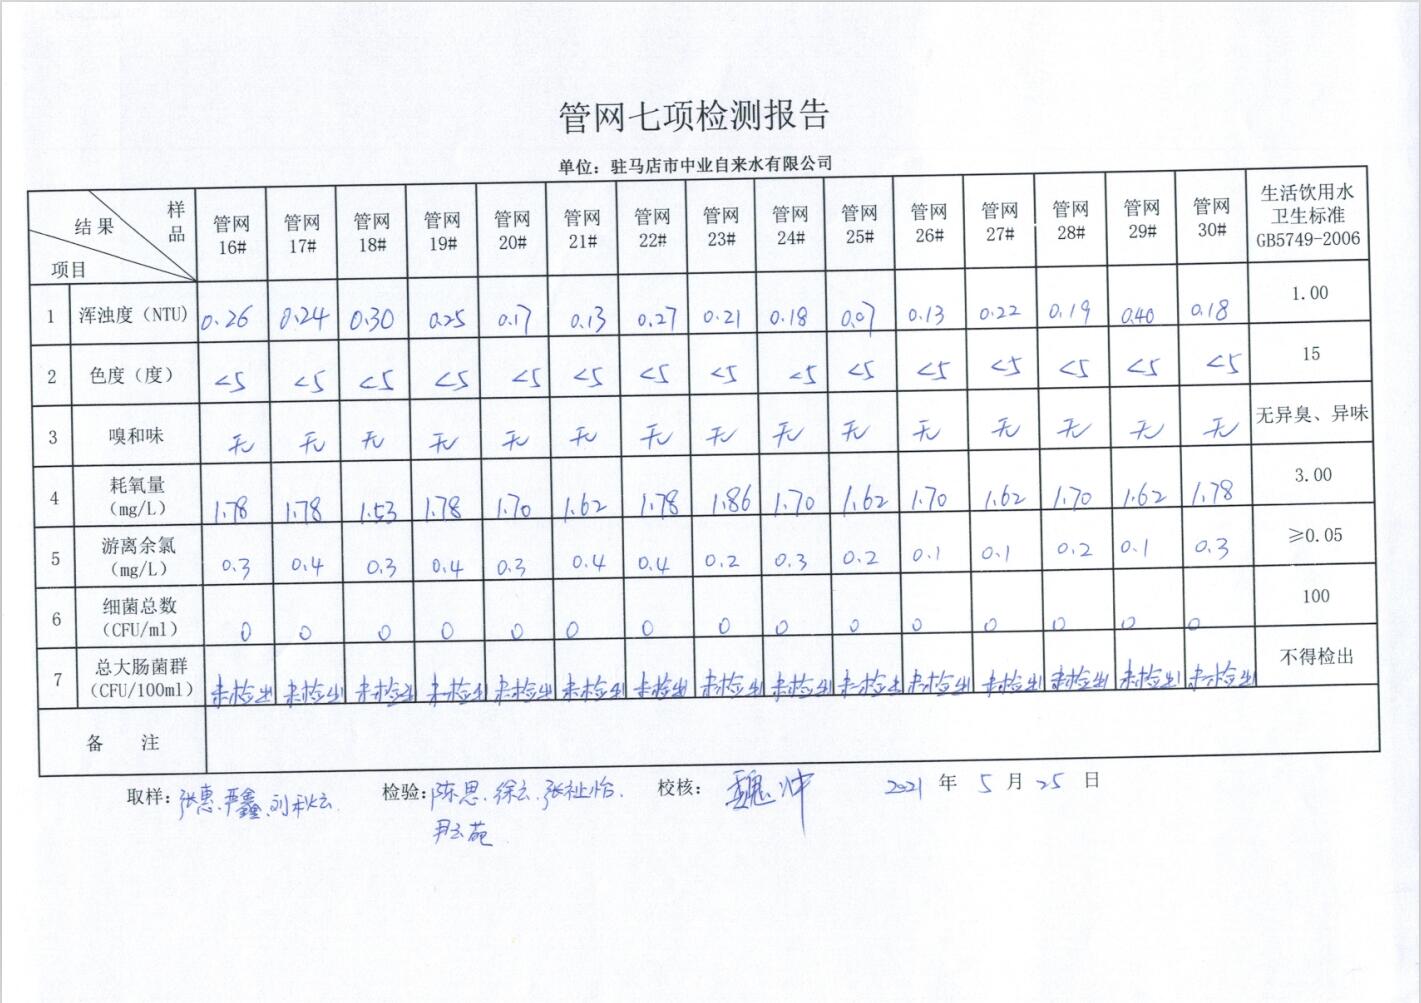 管网七项检测报告
单位：驻马店市中业自来水有限公司
样品 结果 项目 管网16# 管网17# 管网18# 管网19# 管网20# 管网21# 管网22# 管网23# 管网24# 管网25# 管网26# 管网27# 管网28# 管网29# 管网30# 生活饮用水卫生标准GB5749-2006
1 浑浊度（NTU) 0.26 0.24 0.30 0.25 0.17 0.13 0.27 0.21 0.18 0.07 0.13 0.22 0.19 0.40 0.18 1.00
2 色度（度） <5 <5 <5 <5 <5 <5 <5 <5 <5 <5 <5 <5 <5 <5 <5 15
3 嗅和味 无 无 无 无 无 无 无 无 无 无 无 无 无 无 无 无异臭、异味
4 耗氧量（mg/L） 1.78 1.78 1.53 1.78 1.70 1.62 1.78 1.86 1.70 1.62 1.70 1.62 1.70 1.62 1.78 3.00
5 游离余氯（mg/L） 0.3 0.4 0.3 0.4 0.3 0.4 0.4 0.2 0.3 0.2 0.1 0.1 0.2 0.1 0.3 ≥0.05
6 细菌总数（CFU/ml） 0 0 0 0 0 0 0 0 0 0 0 0 0 0 0 100
7 总大肠菌群（CFU/100ml） 未检出 未检出 未检出 未检出 未检出 未检出 未检出 未检出 未检出 未检出 未检出 未检出 未检出 未检出 未检出 不得检出
备 注
取样：张惠、严鑫、刘秋云 检验：陈思、徐云、张祉怡、 校核：魏冲 2021 年 5 月 25 日
尹云苑